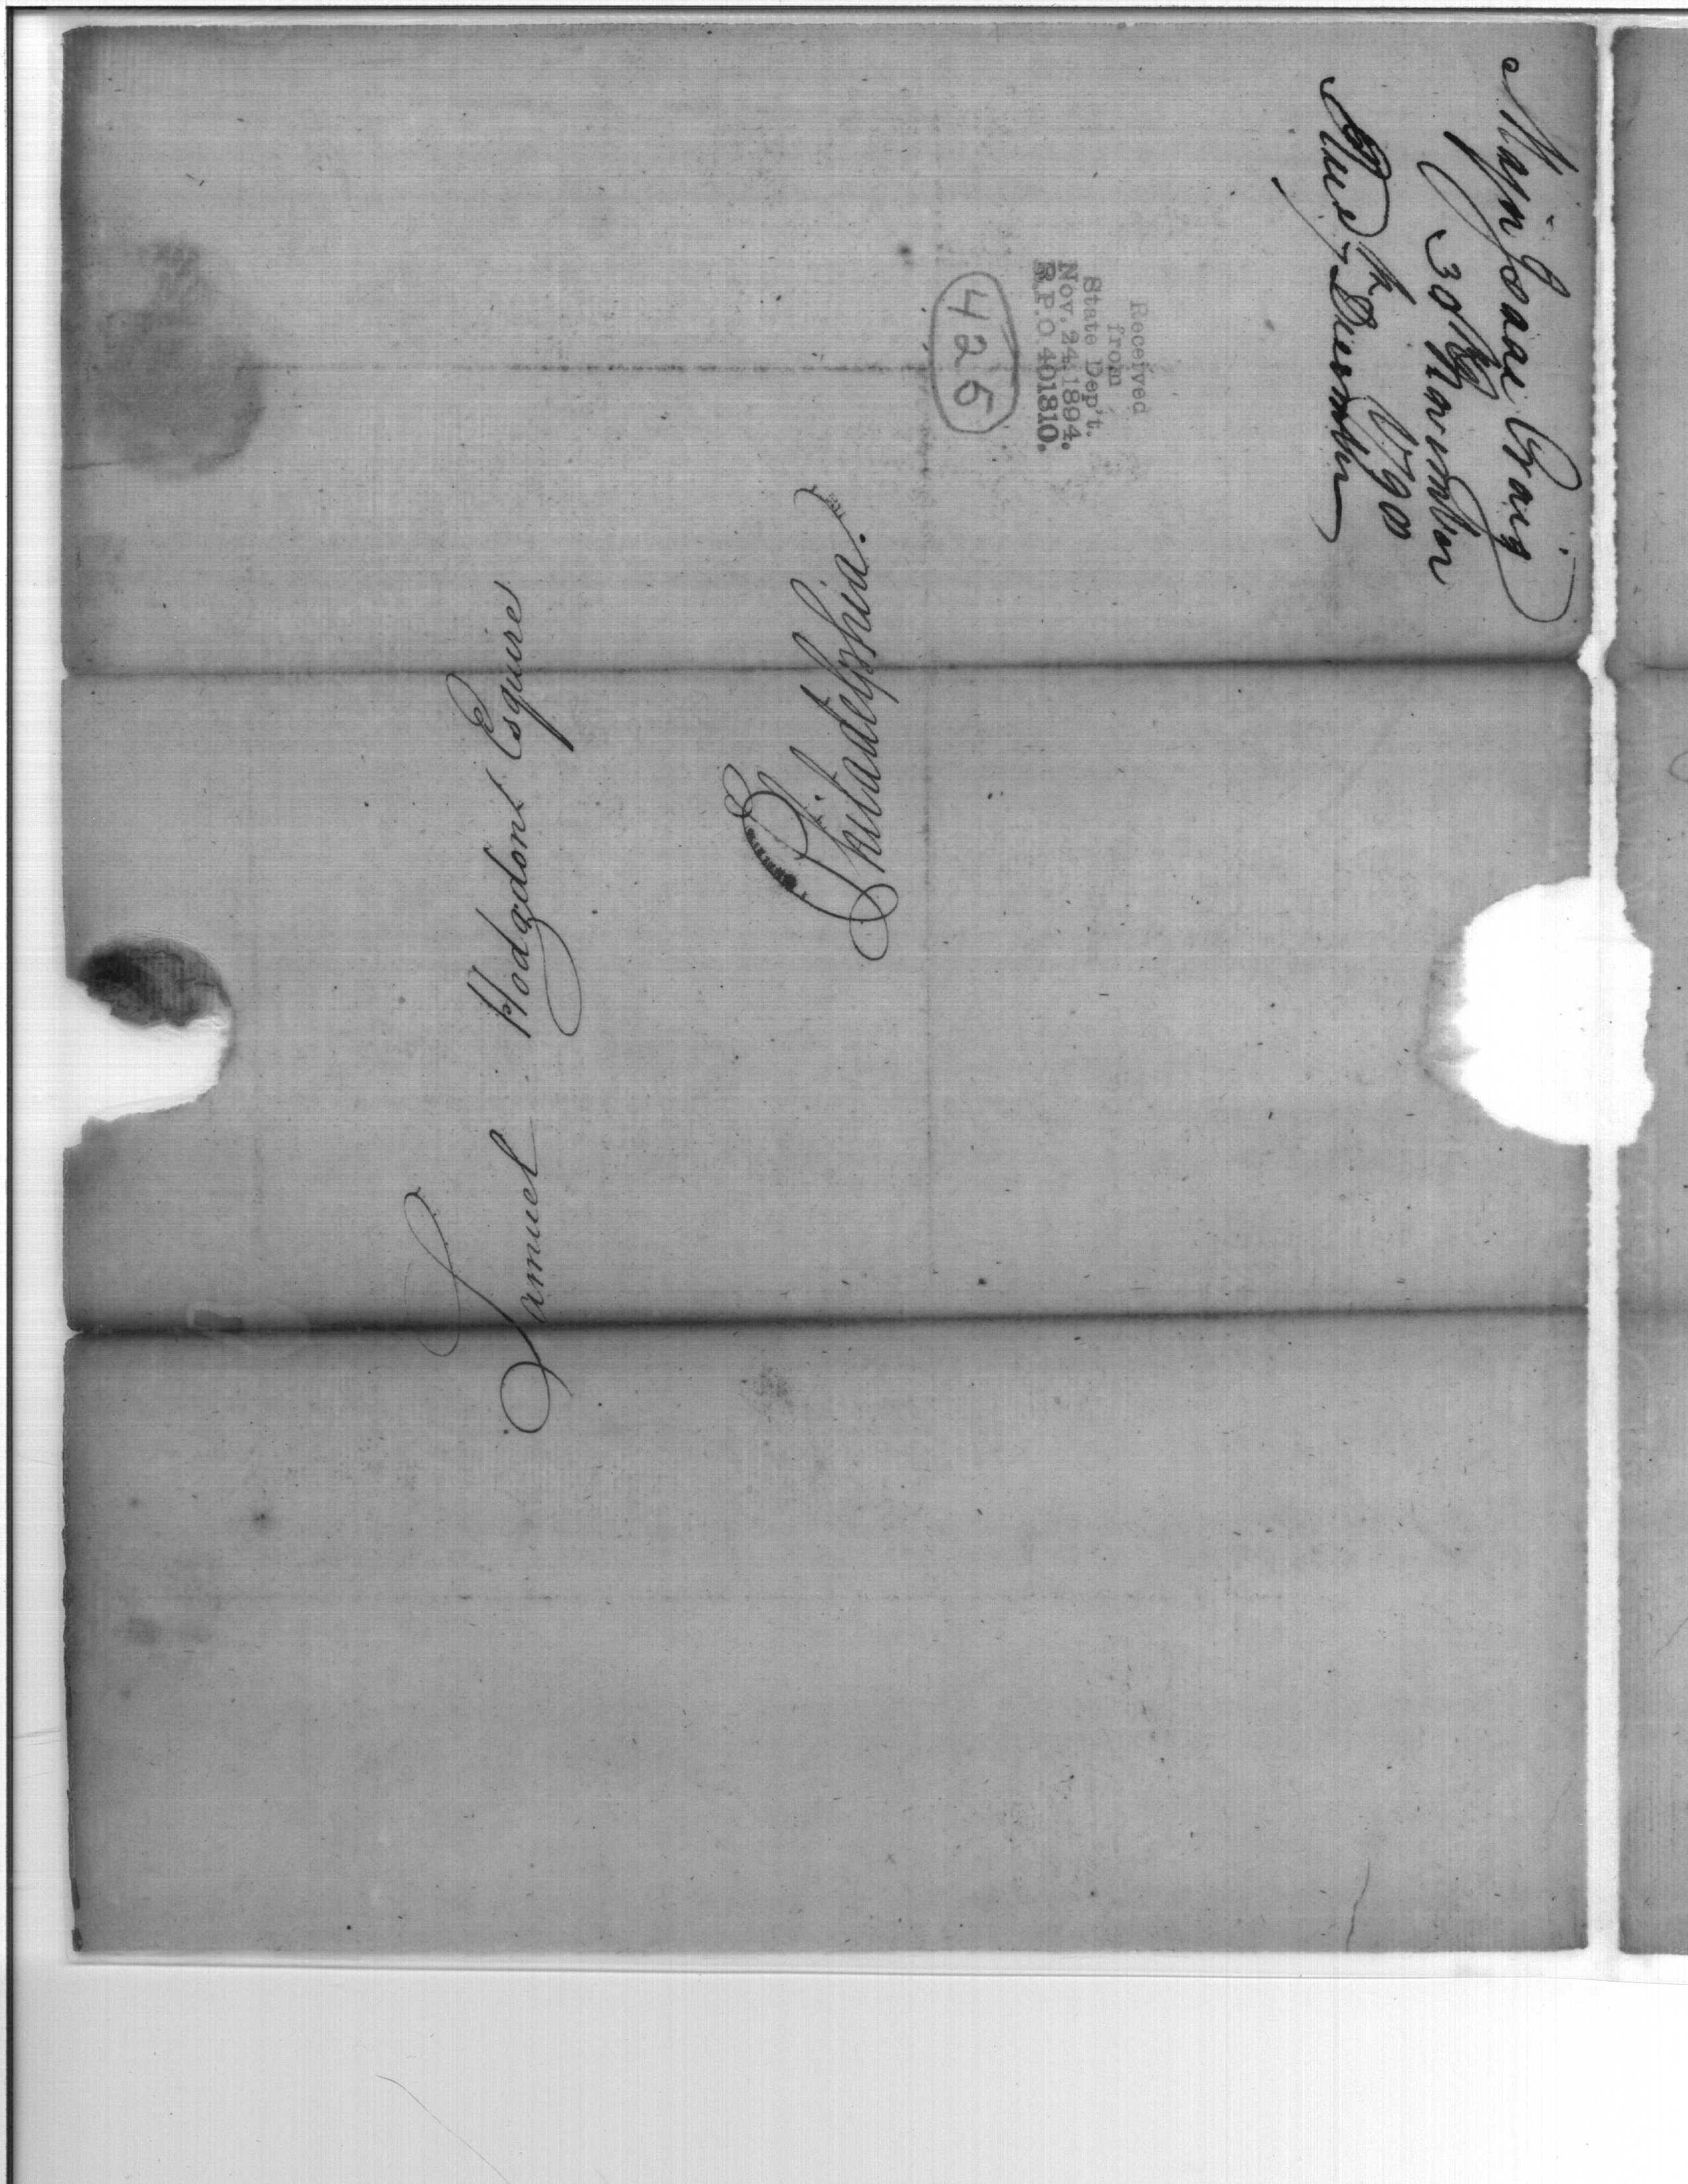 Samuel Hodgdon Esquire
Philadelphia.
Major Isaac Craig
30th November
1790
Recd 7th December
Received
from
State Dep't.
Nov. 24, 1894.
R.P.O. 401310.
425